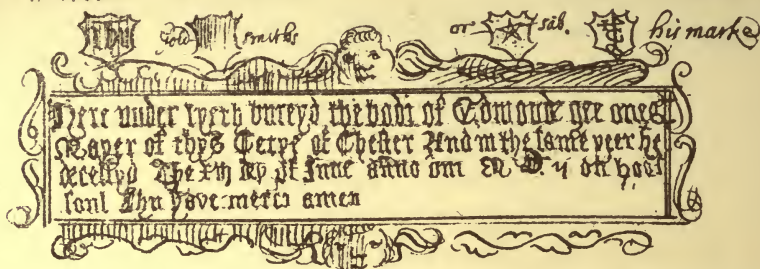 Ihu gold smiths or sab. his marke
Here under lyeth bureyd the bodi of Edmonde gee ones
Mayer of thys Cetye of Chester And in the same yeer he
decessyd The day of June anno on hoos
soul Ihu have merci amen